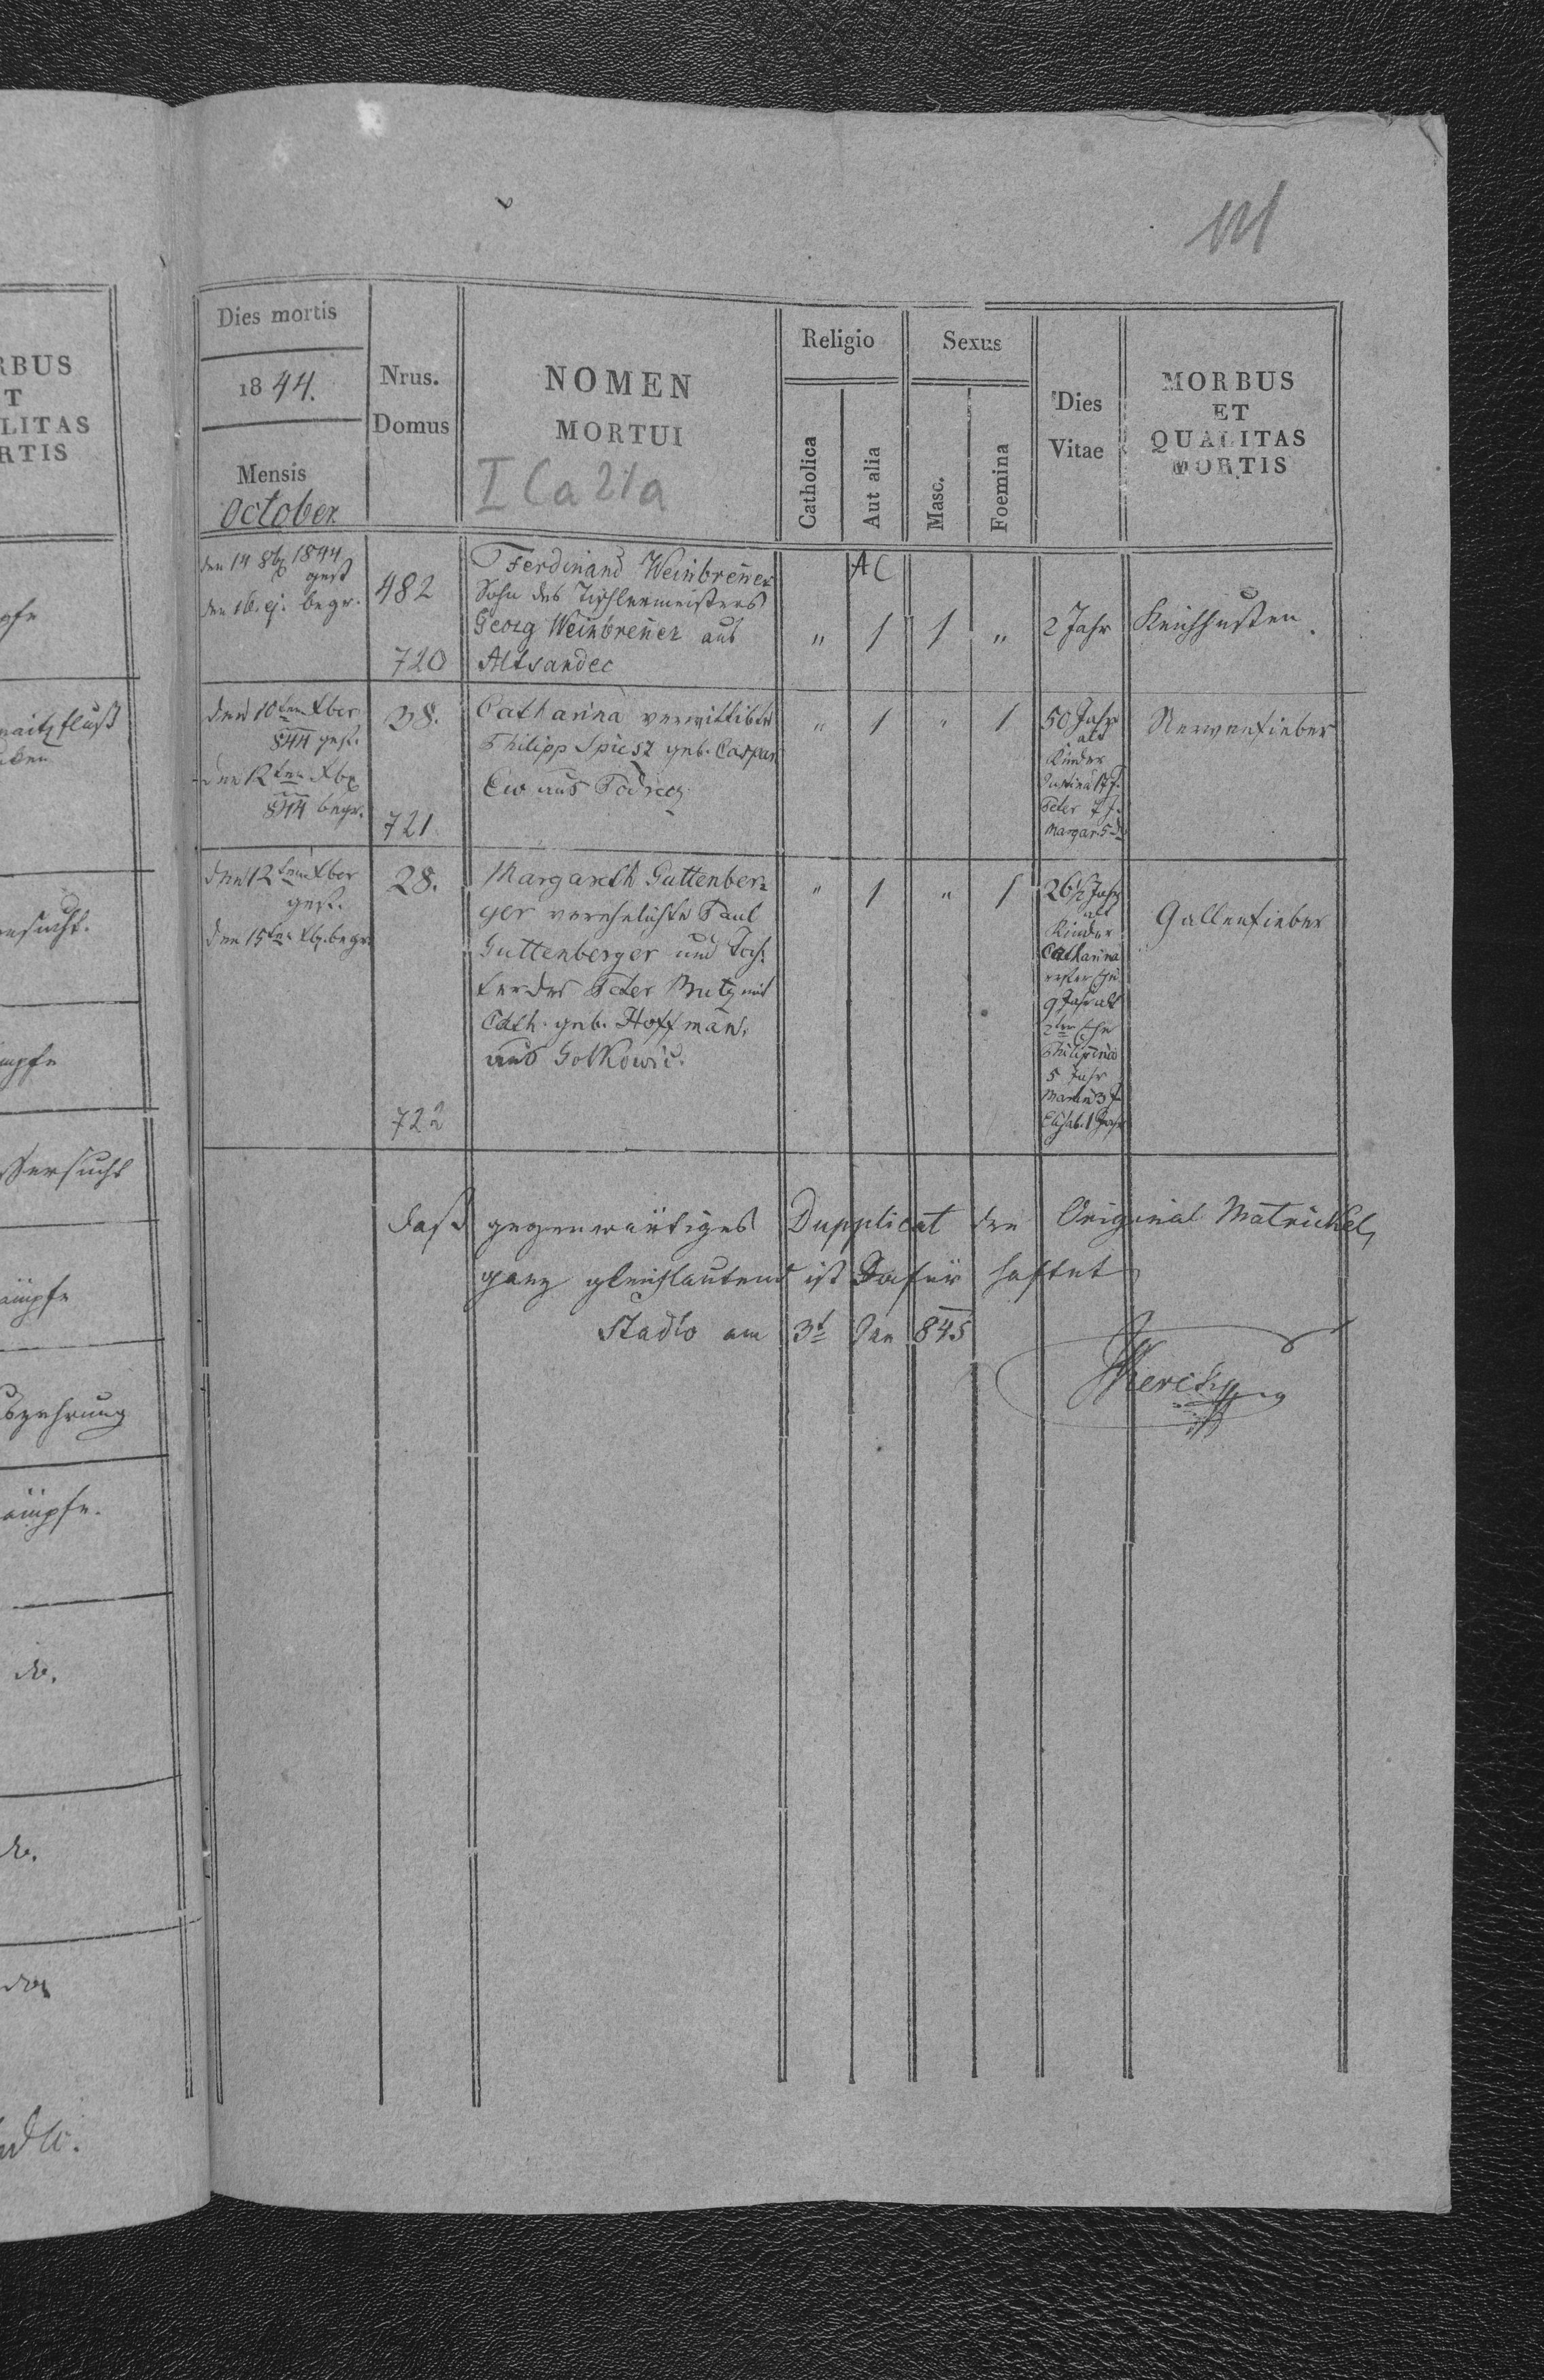 RBUS
T
LITAS
RTIS
Dies mortis
1844.
Mensis
October
Nrus.
Domus
NOMEN
MORTUI
I Ca 21a
Religio
Catholica
Aut alia
Sexus
Masc.
Foemina
Dies
Vitae
MORBUS
ET
QUALITAS
MORTIS
den 14 8b 1844
gest
den 16. ej. begr.
482
720
Ferdinand Weinbren̄er
Sohn des Tischlermeisters
Georg Weinbren̄er aus
Altsandec
AC
" 1 1 "
2 Jahr
Keichhusten.
den 10ten Xber
844 gest.
den 12ten Xb
844 begr.
38.
721
Catharina verwittibte
Philipp Spiesz geb. Caspar
Ew aus
" 1 " 1
50 Jahr
alt
Kinder
Peter 7 J.
Margar. 5
Nervenfieber
den 12ten Xber
gest.
den 15ten Xb. begr.
28.
722
Margareth Guttenber=
ger verehelichte Paul
Guttenberger und Toch=
ter des Peter Butz und
Cath. geb. Hoffman̄.
aus Golkowic.
" 1 " 1
26½ Jahr
alt
Kinder
Catharina
erster Ehe
9 Jahr alt
2ter Ehe
Philipina
5 Jahr
Martin 3 J.
Elisab. 1 Jahr
Gallenfieber
Daß gegenwärtiges Dupplicat der Original Matrickel,
ganz gleichlautend ist dafür haftet
Stadło am 3t Jan 845